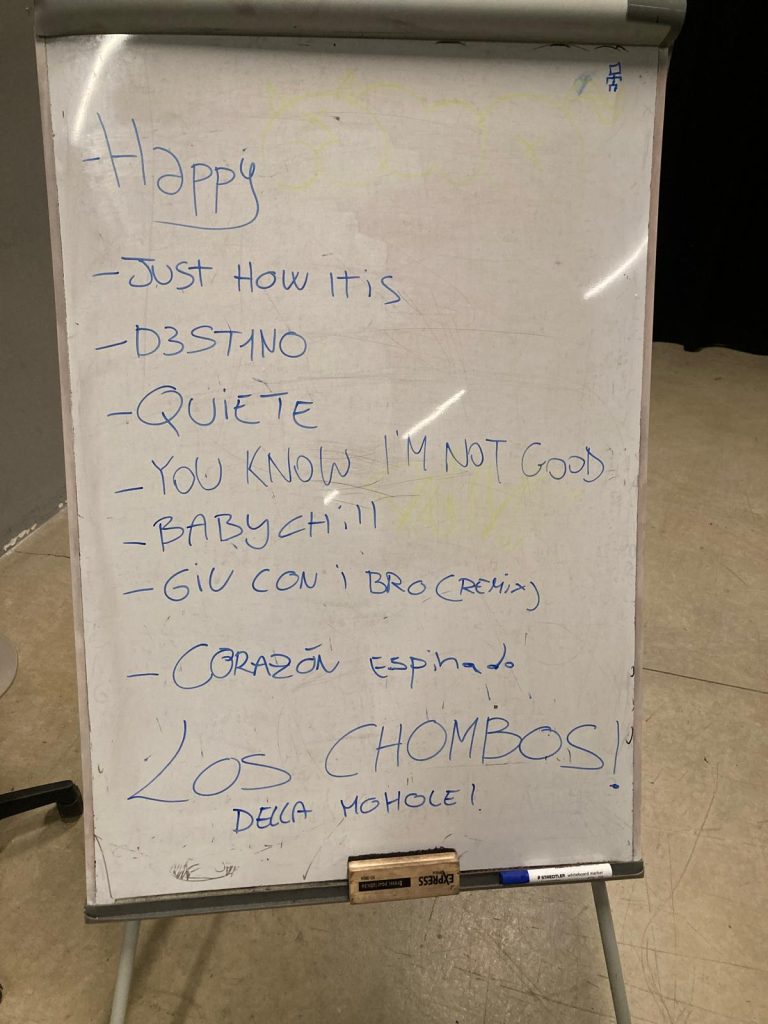 - Happy
- JUST HOW IT iS
- D3ST1NO
- QUIETE
- YOU KNOW I'M NOT GOOD
- BABY CHill
- GIU CON i BRO (REMIX)
- CORAZÓN ESPiNado
LOS CHOMBOS!
DELLA MOHOLE!
EXPRESS
STAEDTLER whiteboard marker